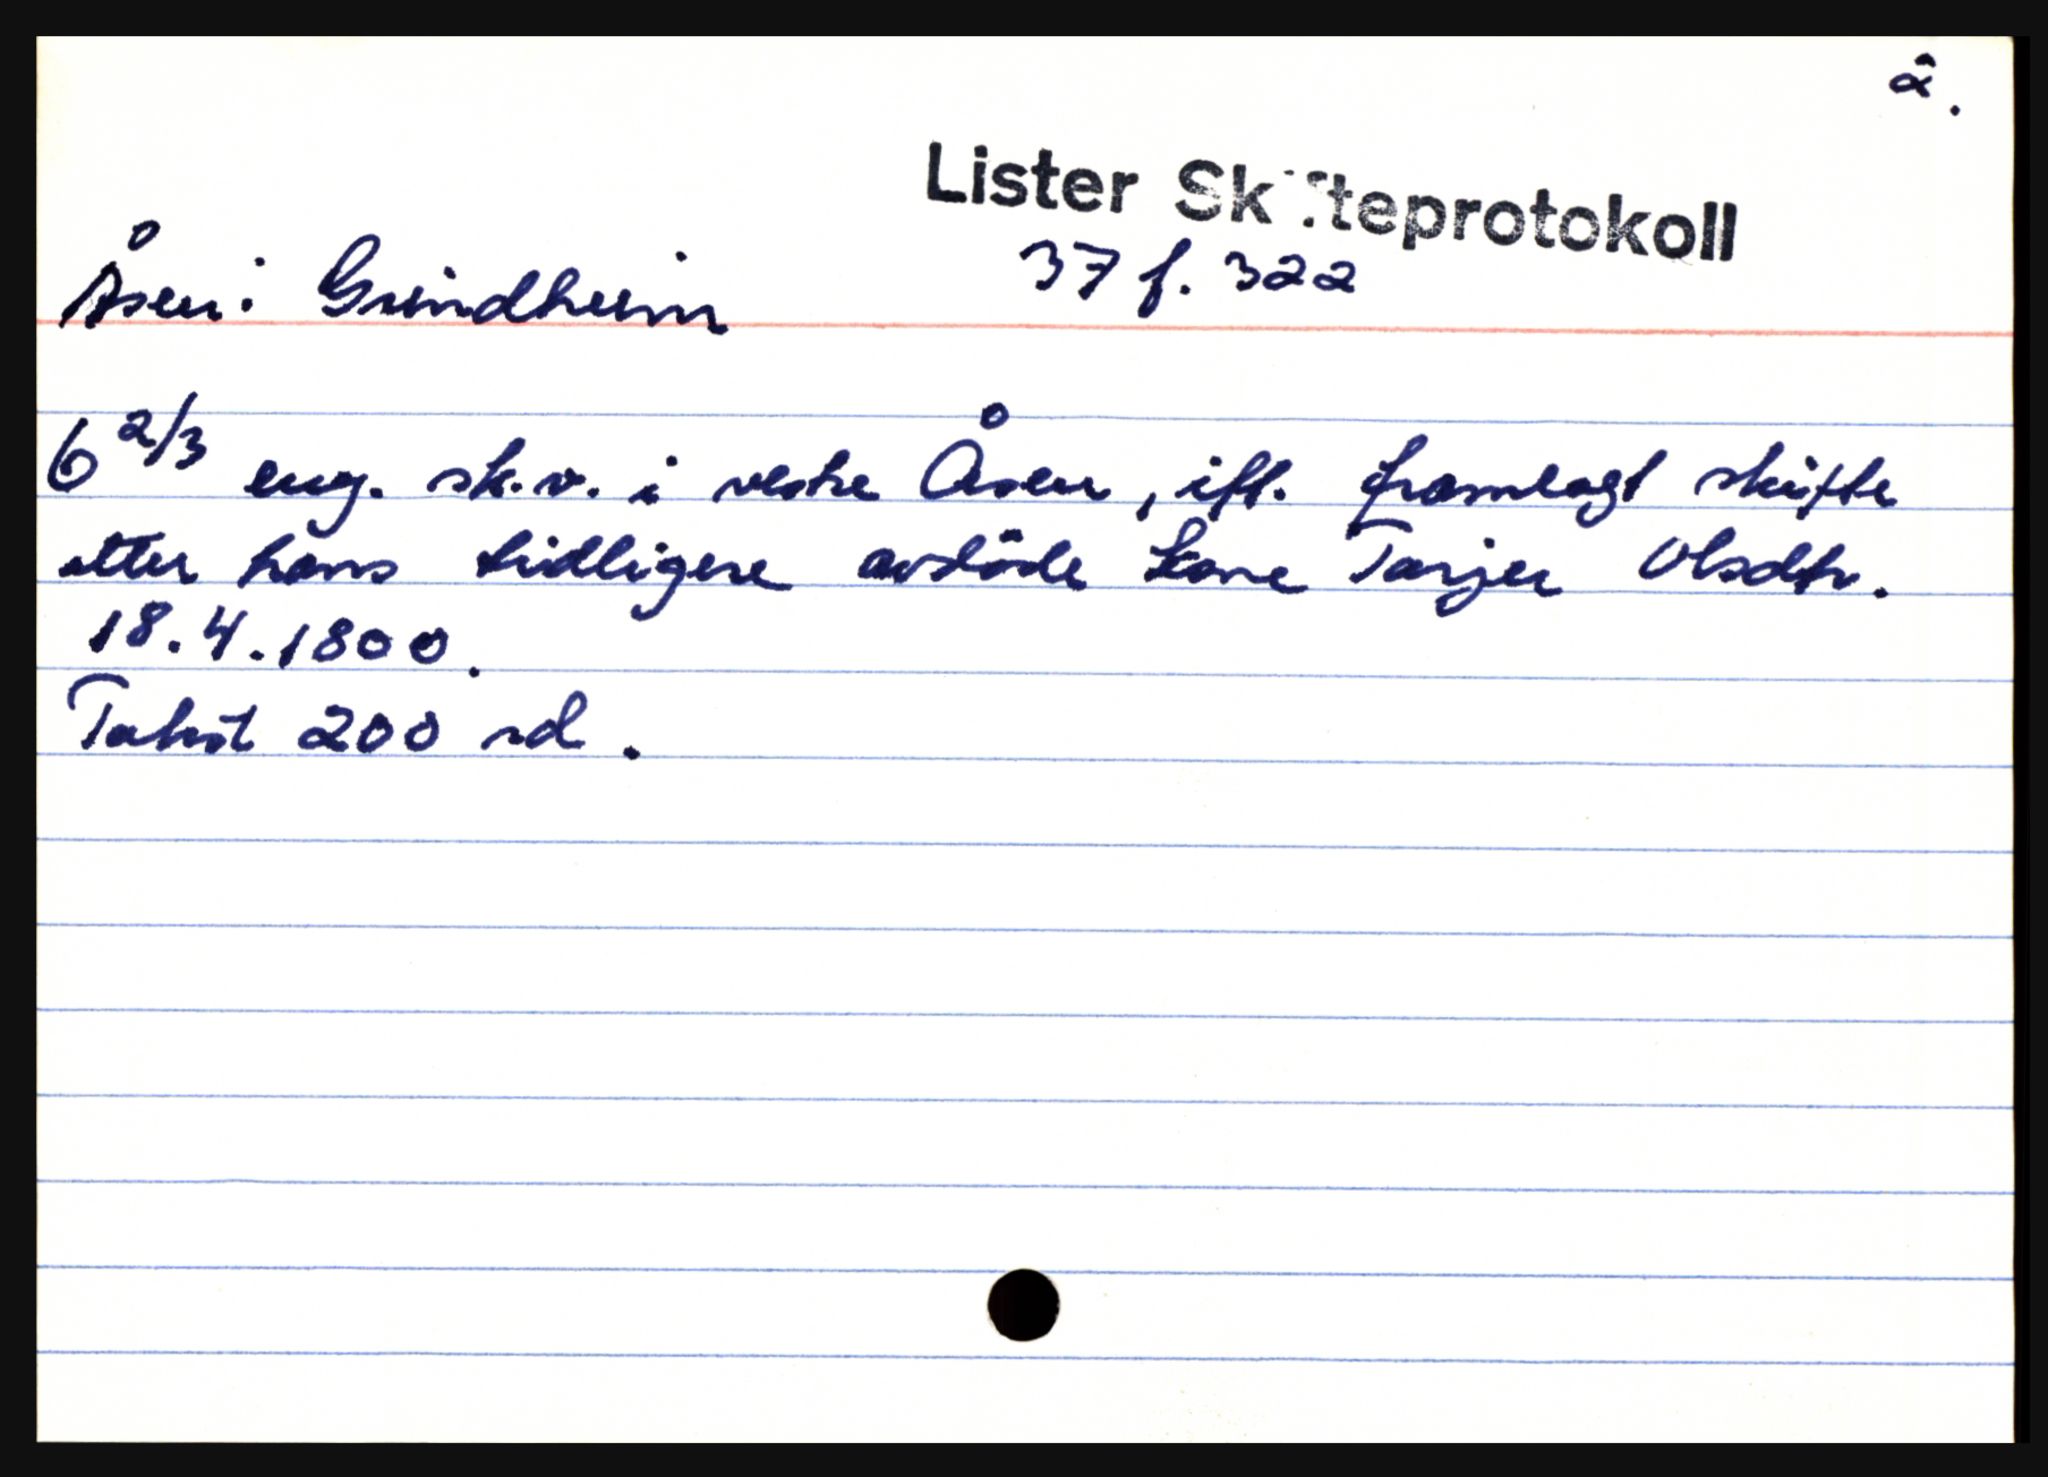 2.
Lister Skifteprotokoll
37 f. 322
Åsen: Grindheim
6 2/3 eng. sk.v. i vestre Åsen, ifl. framlagt skifte
etter hans tidligere avdöde kone Tarjer Olsdtr.
18.4.1800.
Takst 200 rd.